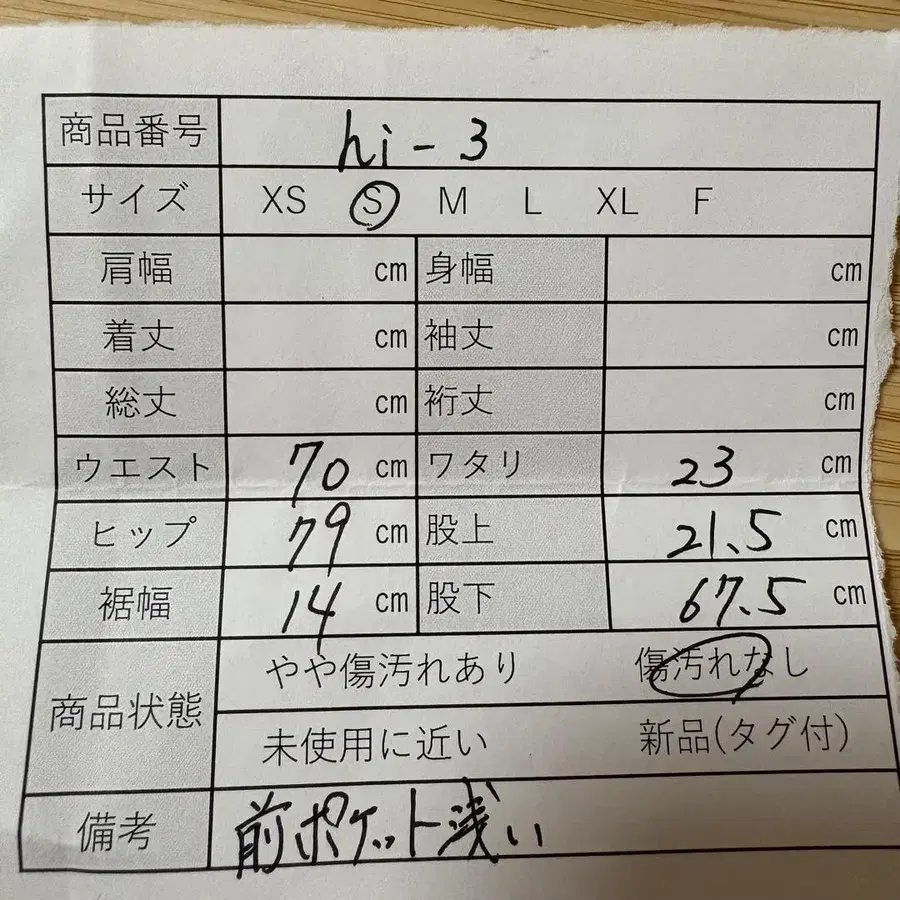 商品番号 hi-3
サイズ XS S M L XL F
肩幅 cm 身幅 cm
着丈 cm 袖丈 cm
総丈 cm 裄丈 cm
ウエスト 70 cm ワタリ 23 cm
ヒップ 79 cm 股上 21.5 cm
裾幅 14 cm 股下 67.5 cm
商品状態 やや傷汚れあり 傷汚れなし
未使用に近い 新品(タグ付)
備考 前ポケット浅い